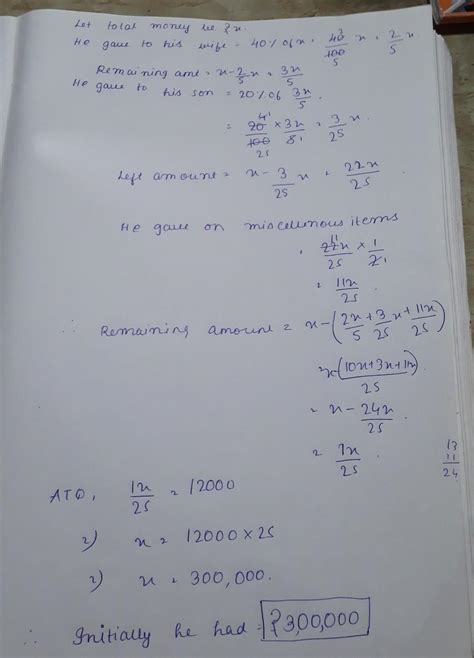 Let total money be ₹x.
He gave to his wife = 40% of x = 40/100 x = 2/5 x
Remaining amt = x - 2/5 x = 3x/5
He gave to his son = 20% of 3x/5.
= 20/100 × 3x/5 = 3/25 x.
Left amount = x - 3/25 x = 22x/25
He gave on miscellinous items
= 22x/25 × 1/2
= 11x/25.
∴ Remaining amount = x - (2x/5 + 3/25 x + 11x/25)
x - (10x + 3x + 11x)/25
= x - 24x/25
= 1x/25.
13
11
24
ATQ, 1x/25 = 12000
=) x = 12000 × 25
=) x = 300,000.
∴ Initially he had = ₹3,00,000